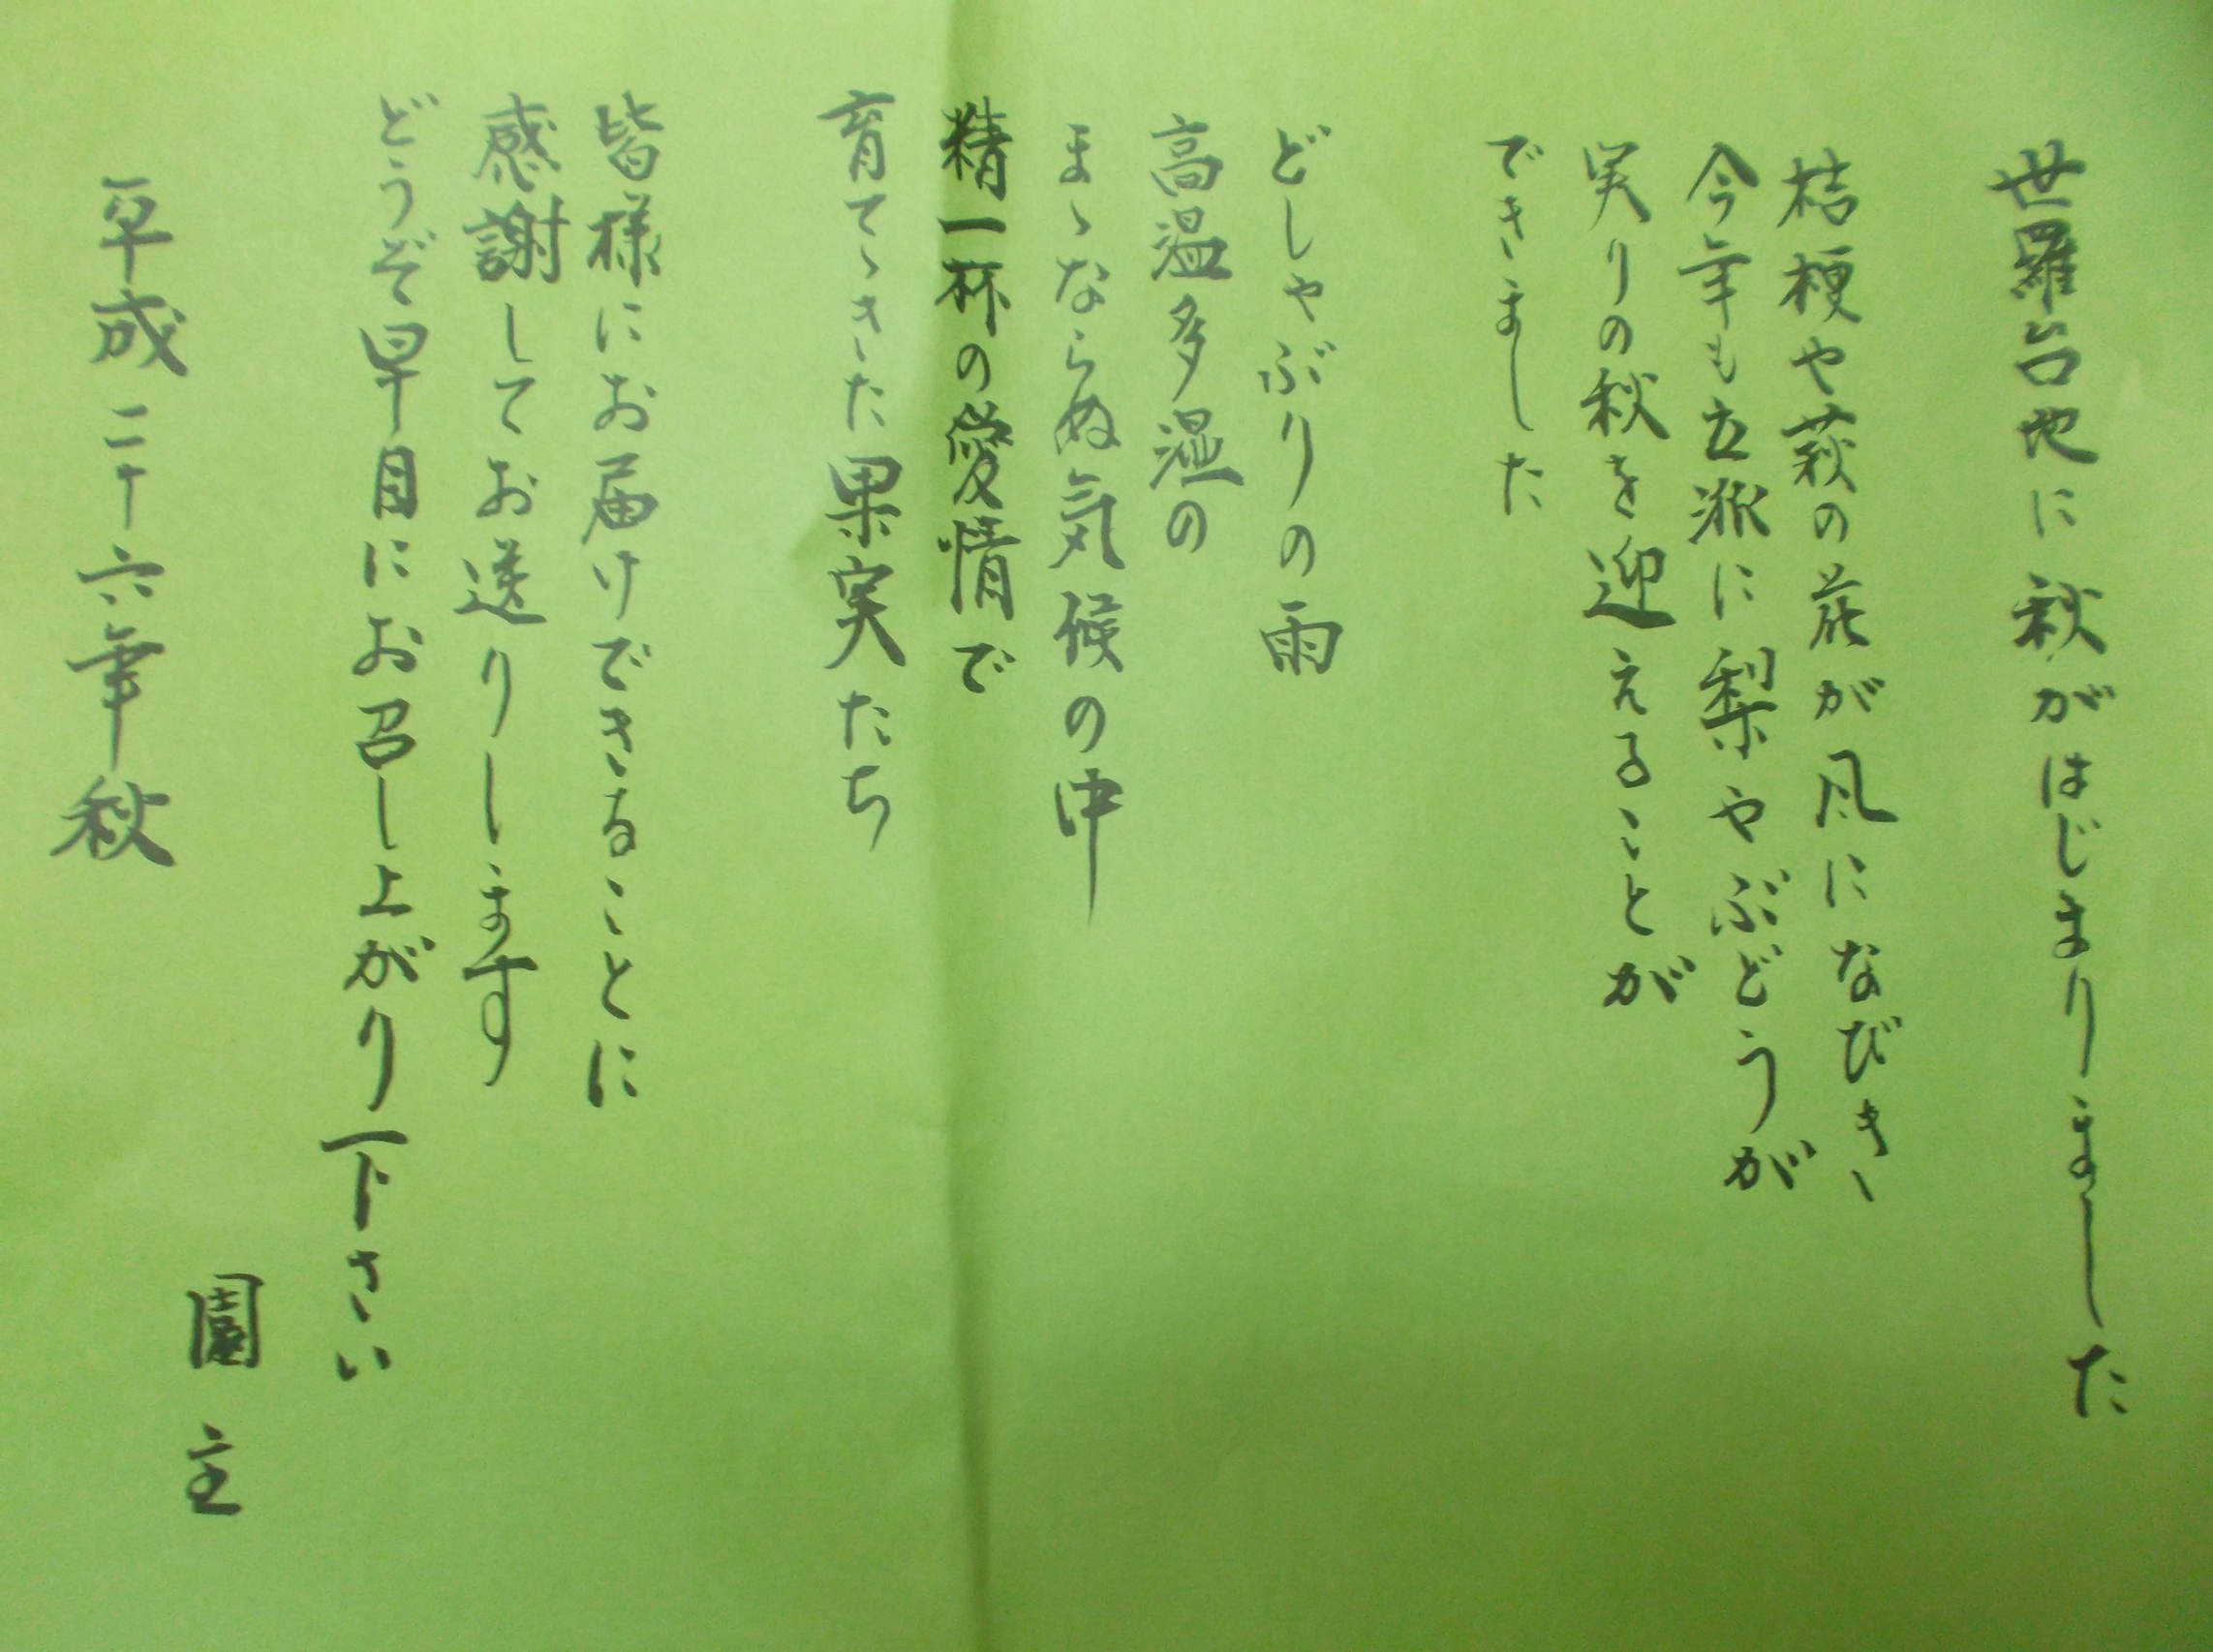 世羅台地に秋がはじまりました
桔梗や萩の花が風になびき、
今年も立派に梨やぶどうが
実りの秋を迎えることが
できました
どしゃぶりの雨
高温多湿の
まゝならぬ気候の中
精一杯の愛情で
育てゝきた果実たち
皆様にお届けできることに
感謝してお送りします
どうぞ早目にお召し上がり下さい
園主
平成二十六年秋